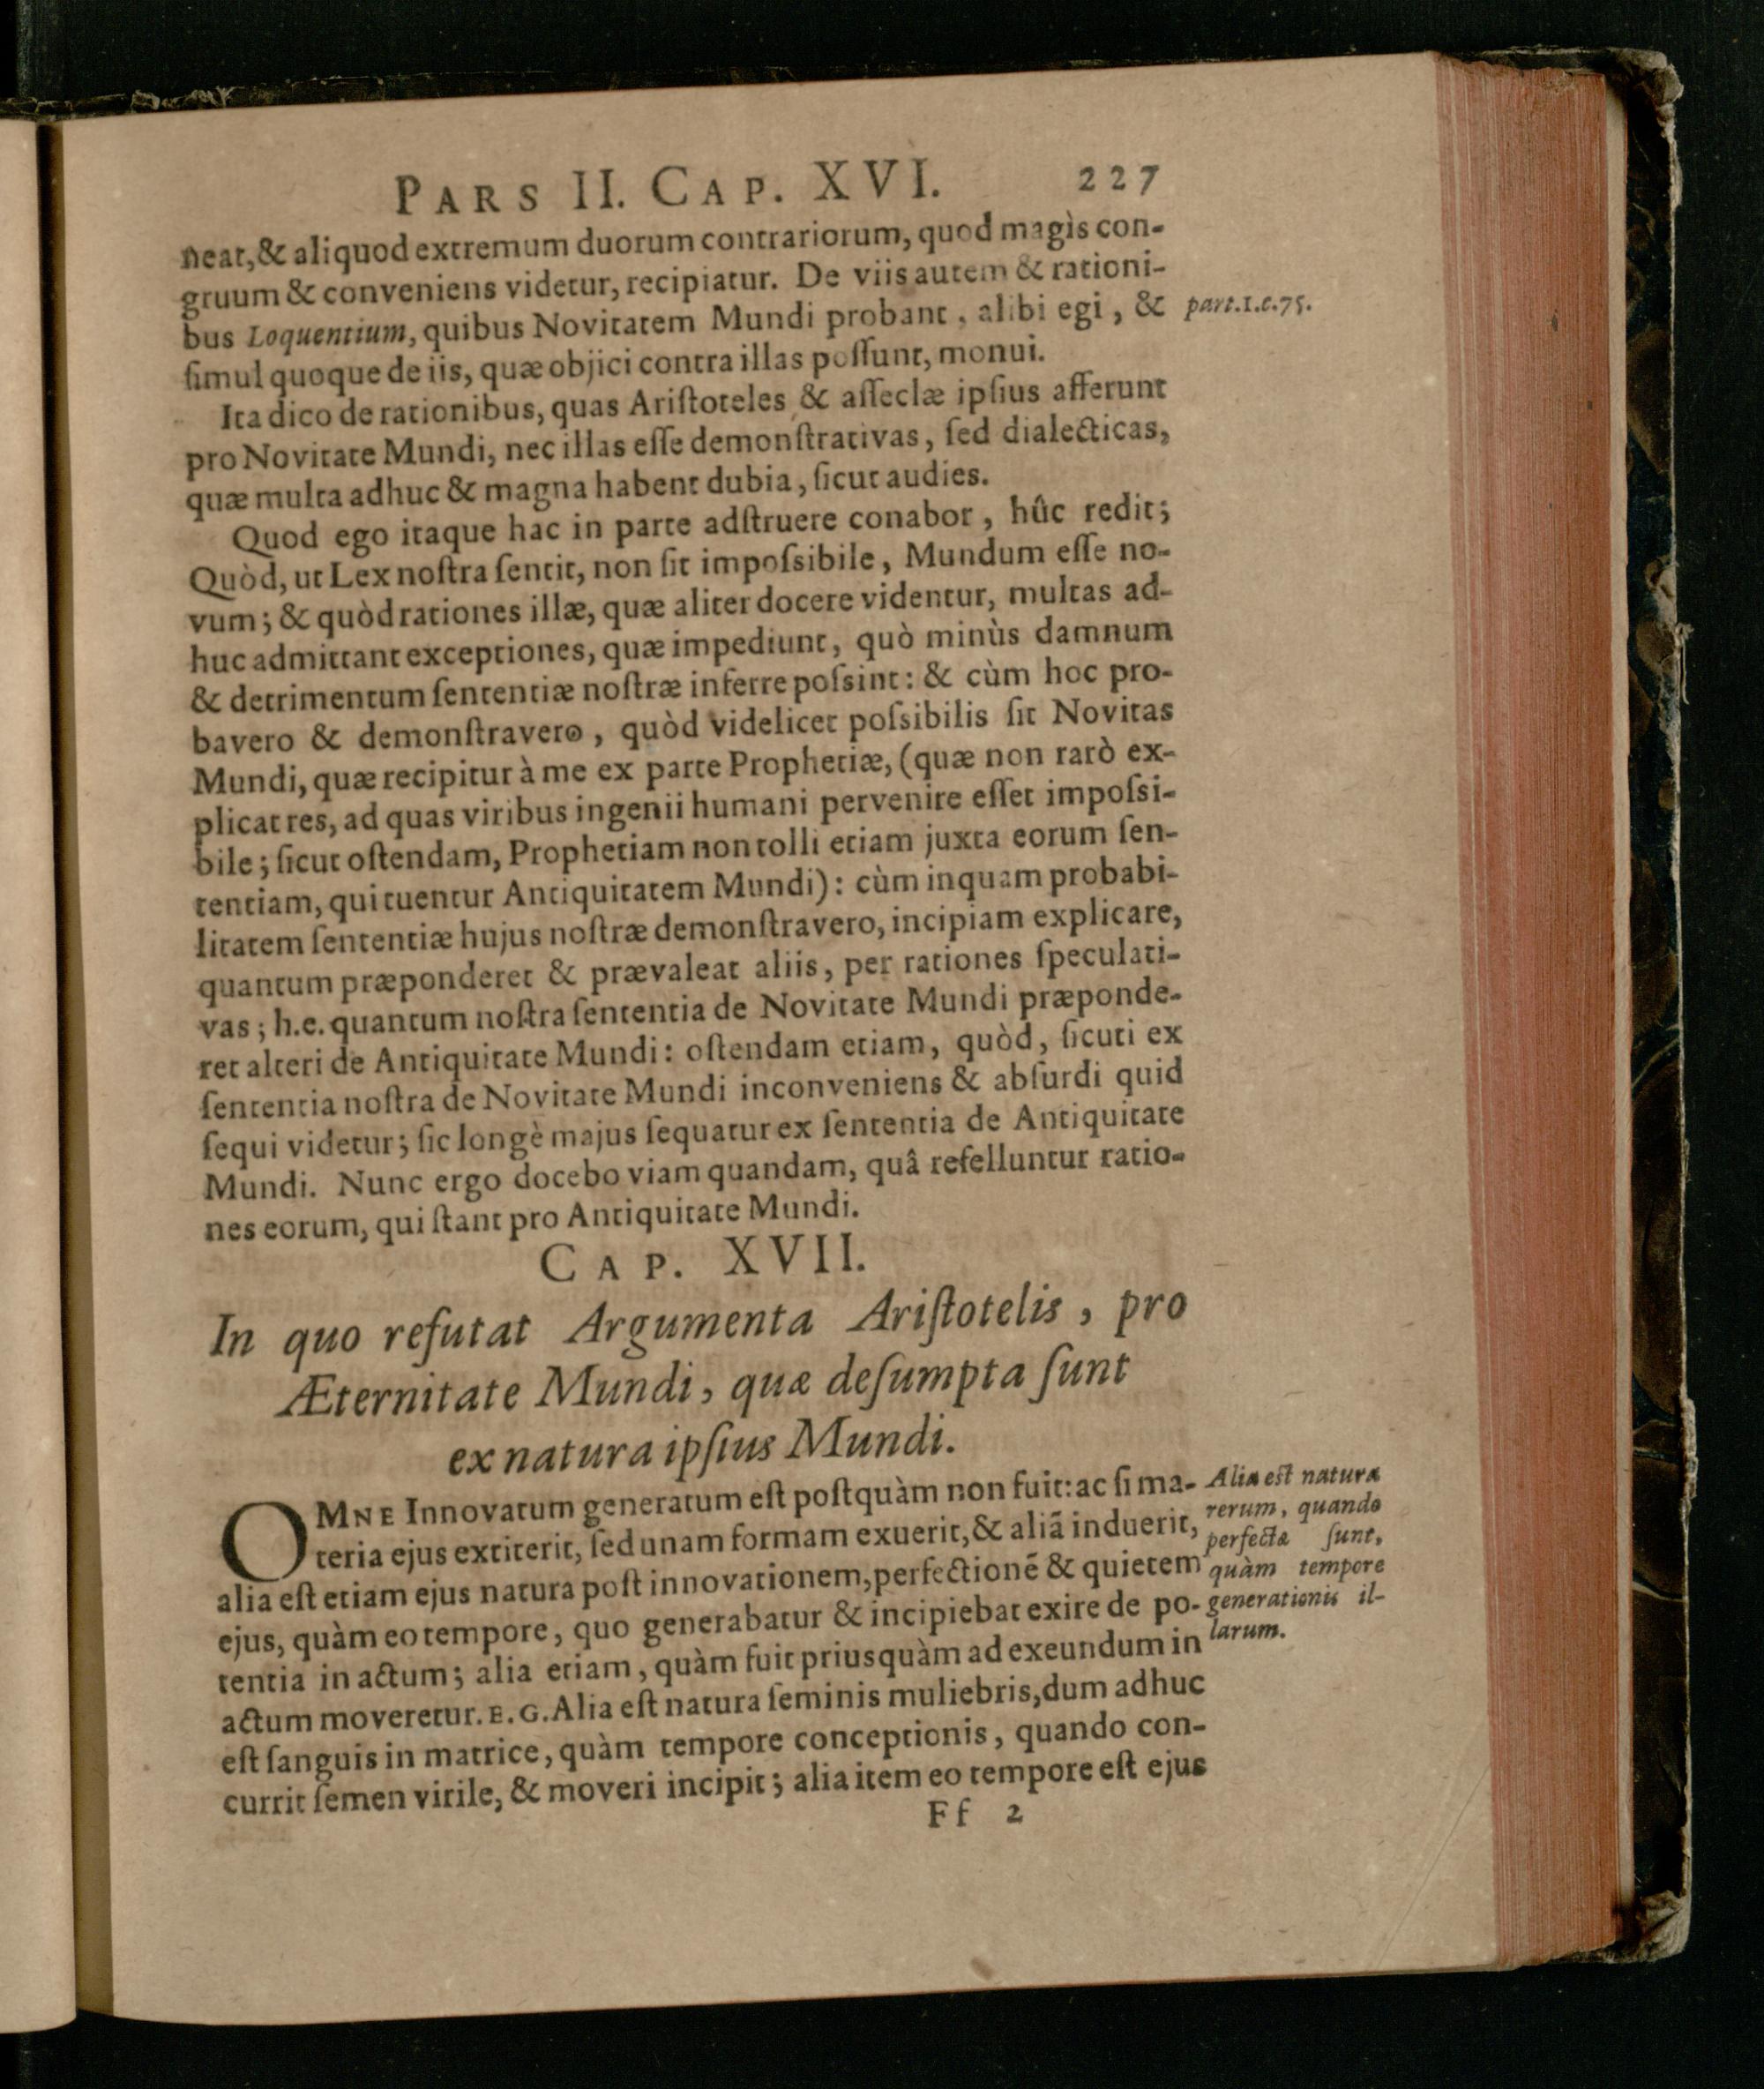 PARS II. CAP. XVI. 227
neat,& aliquod extremum duorum contrariorum, quod magìs con-
gruum & conveniens videtur, recipiatur. De viis autem & rationi-
bus Loquentium, quibus Novitatem Mundi probant, alibi egi, & part.1.c.75.
ſimul quoque de iis, quæ objici contra illas poſſunt, monui.
Ita dico de rationibus, quas Ariſtoteles & aſſeclæ ipſius afferunt
pro Novitate Mundi, nec illas eſſe demonſtrativas, ſed dialecticas,
quæ multa adhuc & magna habent dubia, ſicut audies.
Quod ego itaque hac in parte adſtruere conabor, hûc redit;
Quòd, ut Lex noſtra ſentit, non ſit impoſsibile, Mundum eſſe no-
vum; & quòd rationes illæ, quæ aliter docere videntur, multas ad-
huc admittant exceptiones, quæ impediunt, quò minùs damnum
& detrimentum ſententiæ noſtræ inferre poſsint: & cùm hoc pro-
bavero & demonſtravero, quòd videlicet poſsibilis ſit Novitas
Mundi, quæ recipitur à me ex parte Prophetiæ, (quæ non rarò ex-
plicat res, ad quas viribus ingenii humani pervenire eſſet impoſsi-
bile; ſicut oſtendam, Prophetiam non tolli etiam juxta eorum ſen-
tentiam, qui tuentur Antiquitatem Mundi): cùm inquam probabi-
litatem ſententiæ hujus noſtræ demonſtravero, incipiam explicare,
quantum præponderet & prævaleat aliis, per rationes ſpeculati-
vas; h.e. quantum noſtra ſententia de Novitate Mundi præponde-
ret alteri de Antiquitate Mundi: oſtendam etiam, quòd, ſicuti ex
ſententia noſtra de Novitate Mundi inconveniens & abſurdi quid
ſequi videtur; ſic longè majus ſequatur ex ſententia de Antiquitate
Mundi. Nunc ergo docebo viam quandam, quâ refelluntur ratio-
nes eorum, qui ſtant pro Antiquitate Mundi.
CAP. XVII.
In quo refutat Argumenta Ariſtotelis, pro
Æternitate Mundi, quæ deſumpta ſunt
ex natura ipſius Mundi.
OMNE Innovatum generatum eſt poſtquàm non fuit: ac ſi ma-
teria ejus extiterit, ſed unam formam exuerit, & aliã induerit,
alia eſt etiam ejus natura poſt innovationem, perfectionẽ & quietem
ejus, quàm eo tempore, quo generabatur & incipiebat exire de po-
tentia in actum; alia etiam, quàm fuit priusquàm ad exeundum in
actum moveretur. E.G. Alia eſt natura ſeminis muliebris, dum adhuc
eſt ſanguis in matrice, quàm tempore conceptionis, quando con-
currit ſemen virile, & moveri incipit; alia item eo tempore eſt ejus
Alia eſt natura
rerum, quando
perfectæ ſunt,
quàm tempore
generationis il-
larum.
Ff 2